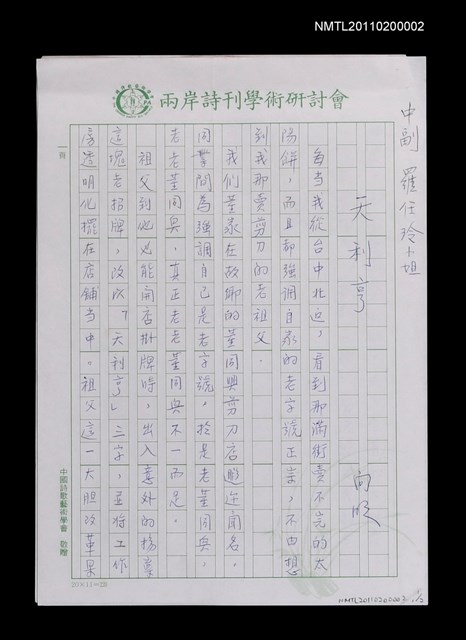 NMTL20110200002
兩岸詩刊學術研討會
中副 羅任玲小姐
天利亨
向明
每當我從台中北返，看到那滿街賣不完的太
陽餅，而且都強調自家的老字號正宗，不由想
到我那賣剪刀的老祖父．
我們董家在故鄉的董同興剪刀店遐迩聞名，
同業間為強調自己是老字號，於是老董同興，
老老董同興，真正老老董同興不一而足。
祖父到他必能開店掛牌時，出入意外的揚棄
這塊老招牌，改以「天利亨」三字，並將工作
房透明化擺在店鋪當中。祖父這一大胆改革果
頁
中國詩歌藝術學會 敬贈
20×11=220
NMTL20110200002 1/2